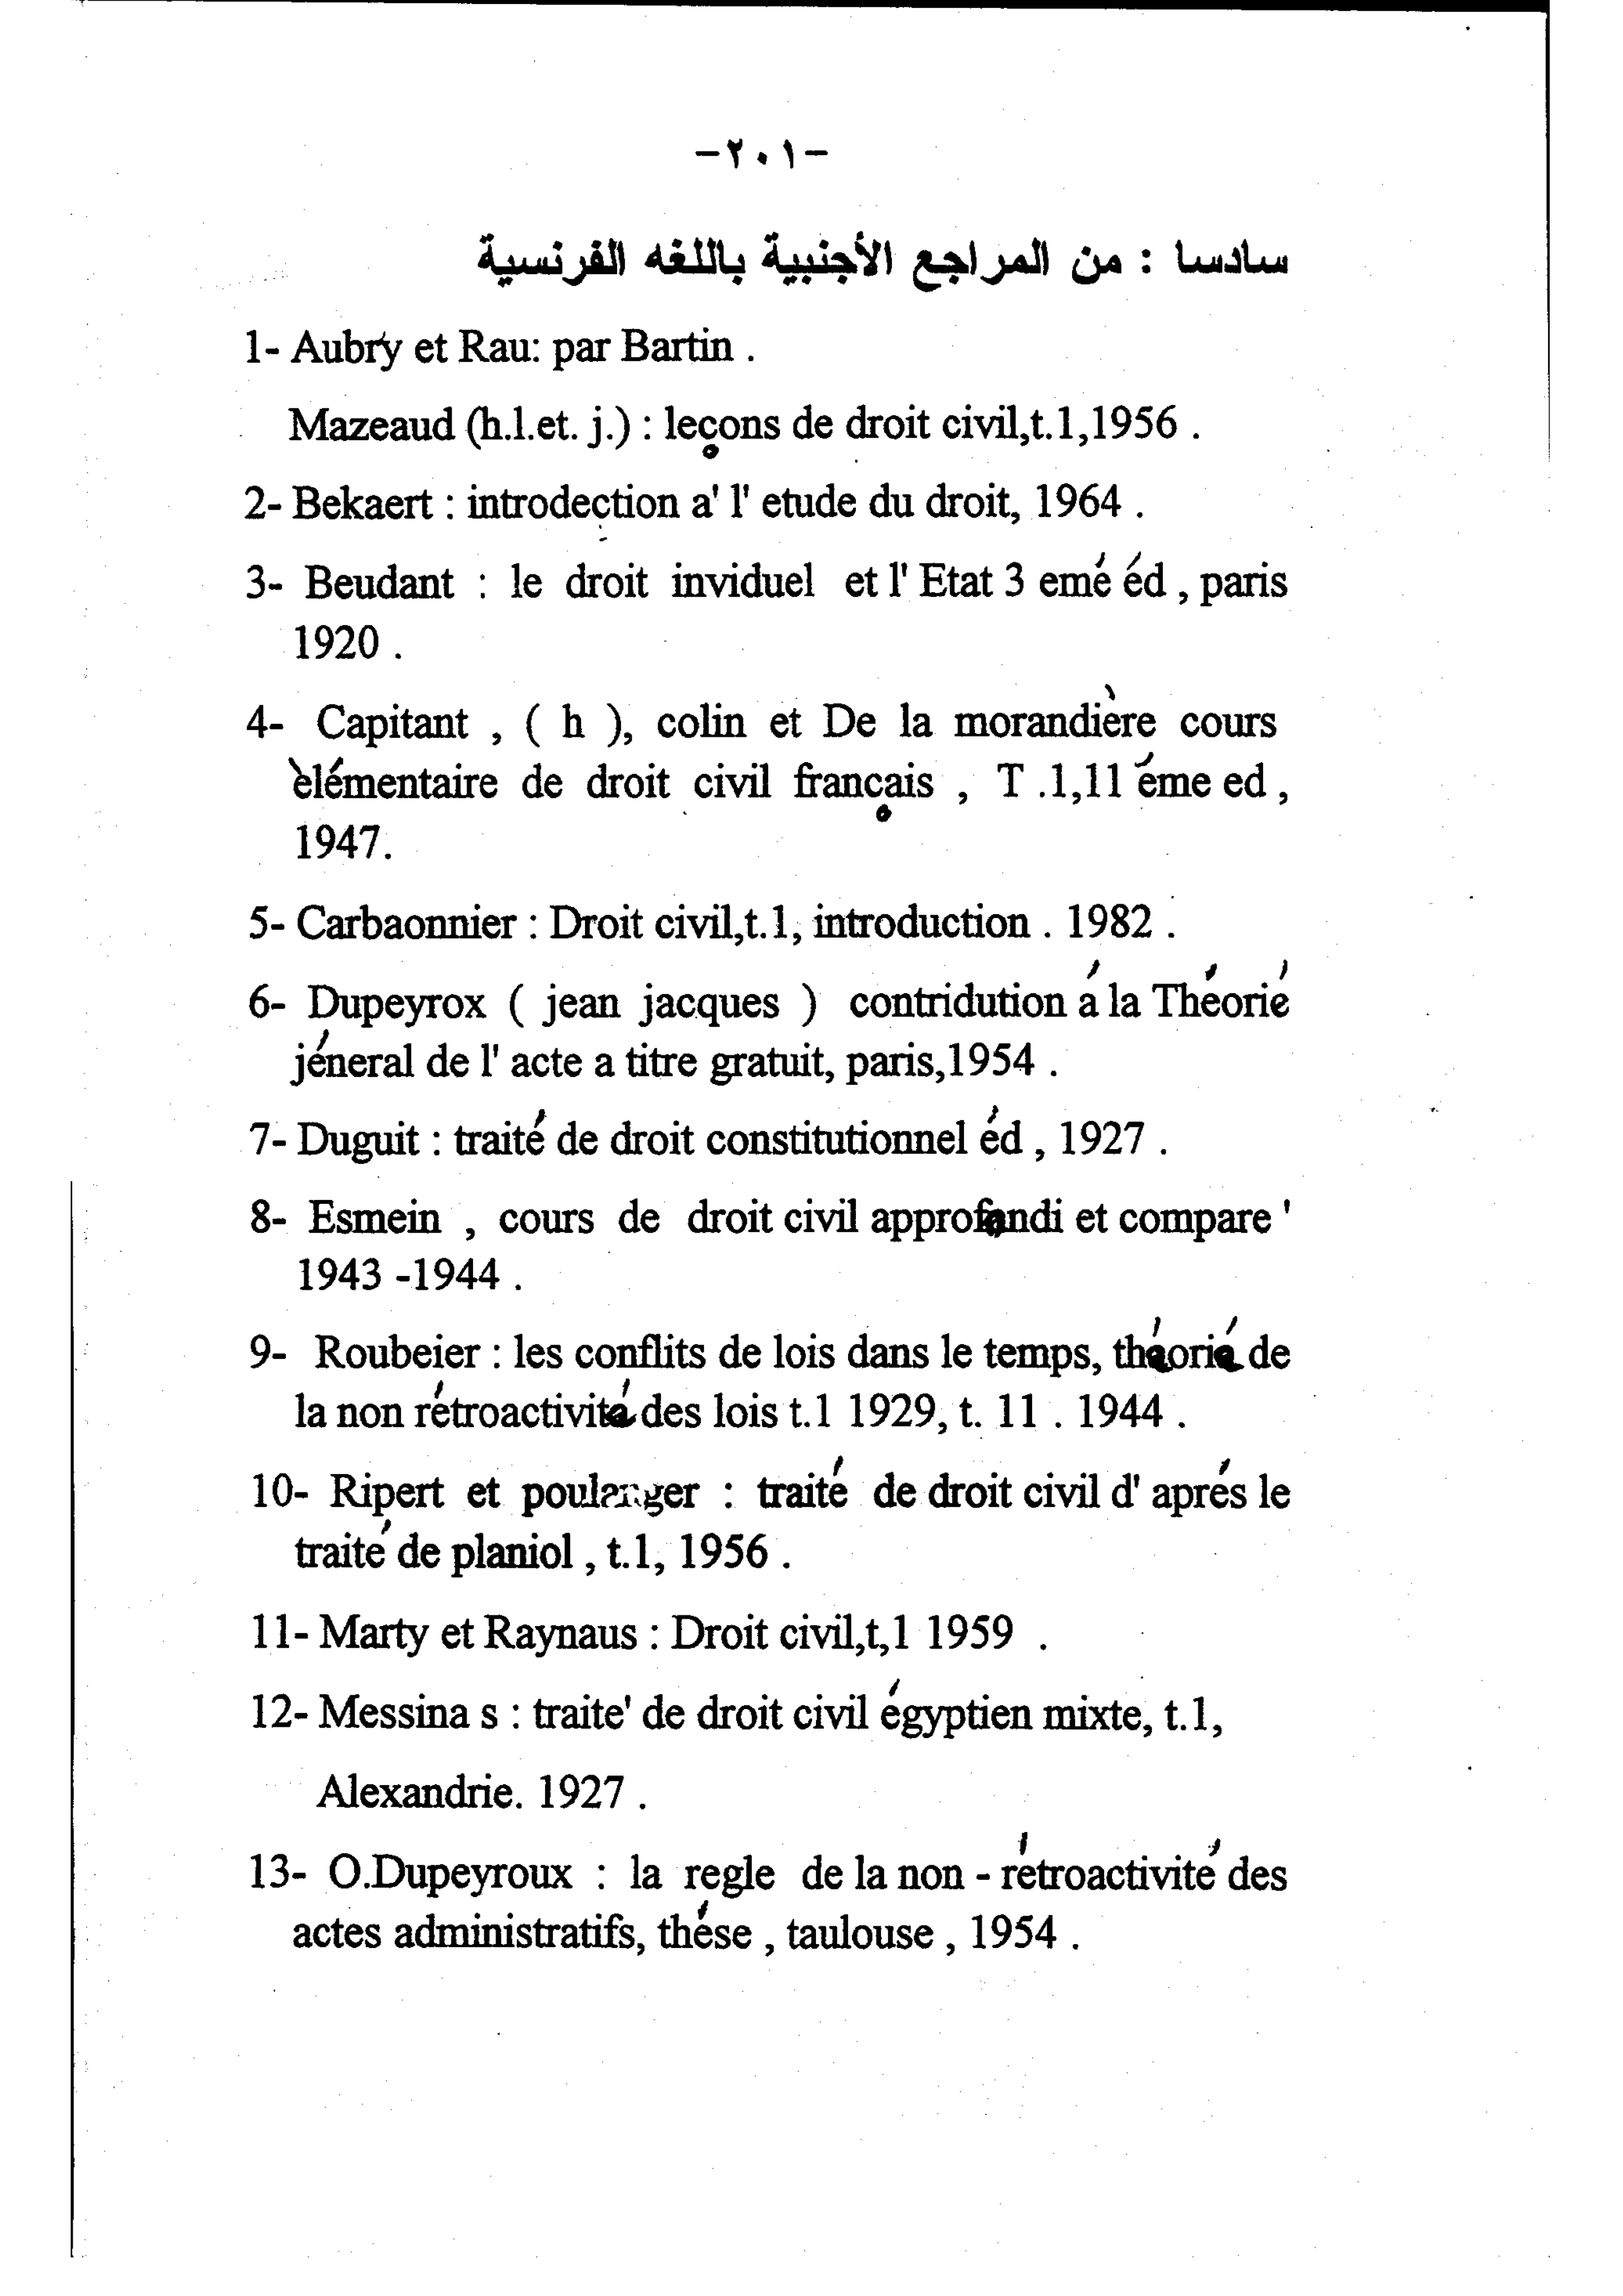 -٢٠١-
سادسا : من المراجع الأجنبية باللغه الفرنسية
1- Aubry et Rau: par Bartin .
Mazeaud (h.l.et. j.) : leçons de droit civil,t.1,1956 .
2- Bekaert : introdection a' l' etude du droit, 1964 .
3- Beudant : le droit inviduel et l' Etat 3 emé éd , paris
1920 .
4- Capitant , ( h ), colin et De la morandière cours
èlémentaire de droit civil français , T .1,11 éme ed ,
1947.
5- Carbaonnier : Droit civil,t.1, introduction . 1982 .
6- Dupeyrox ( jean jacques ) contridution á la Théorié
jéneral de l' acte a titre gratuit, paris,1954 .
7- Duguit : traité de droit constitutionnel éd , 1927 .
8- Esmein , cours de droit civil approfondi et compare '
1943 -1944 .
9- Roubeier : les conflits de lois dans le temps, théorié de
la non rétroactivité des lois t.1 1929, t. 11 . 1944 .
10- Ripert et poulanger : traité de droit civil d' aprés le
traité de planiol , t.1, 1956 .
11- Marty et Raynaus : Droit civil,t,1 1959 .
12- Messina s : traite' de droit civil égyptien mixte, t.1,
Alexandrie. 1927 .
13- O.Dupeyroux : la regle de la non - rétroactivité des
actes administratifs, thése , taulouse , 1954 .